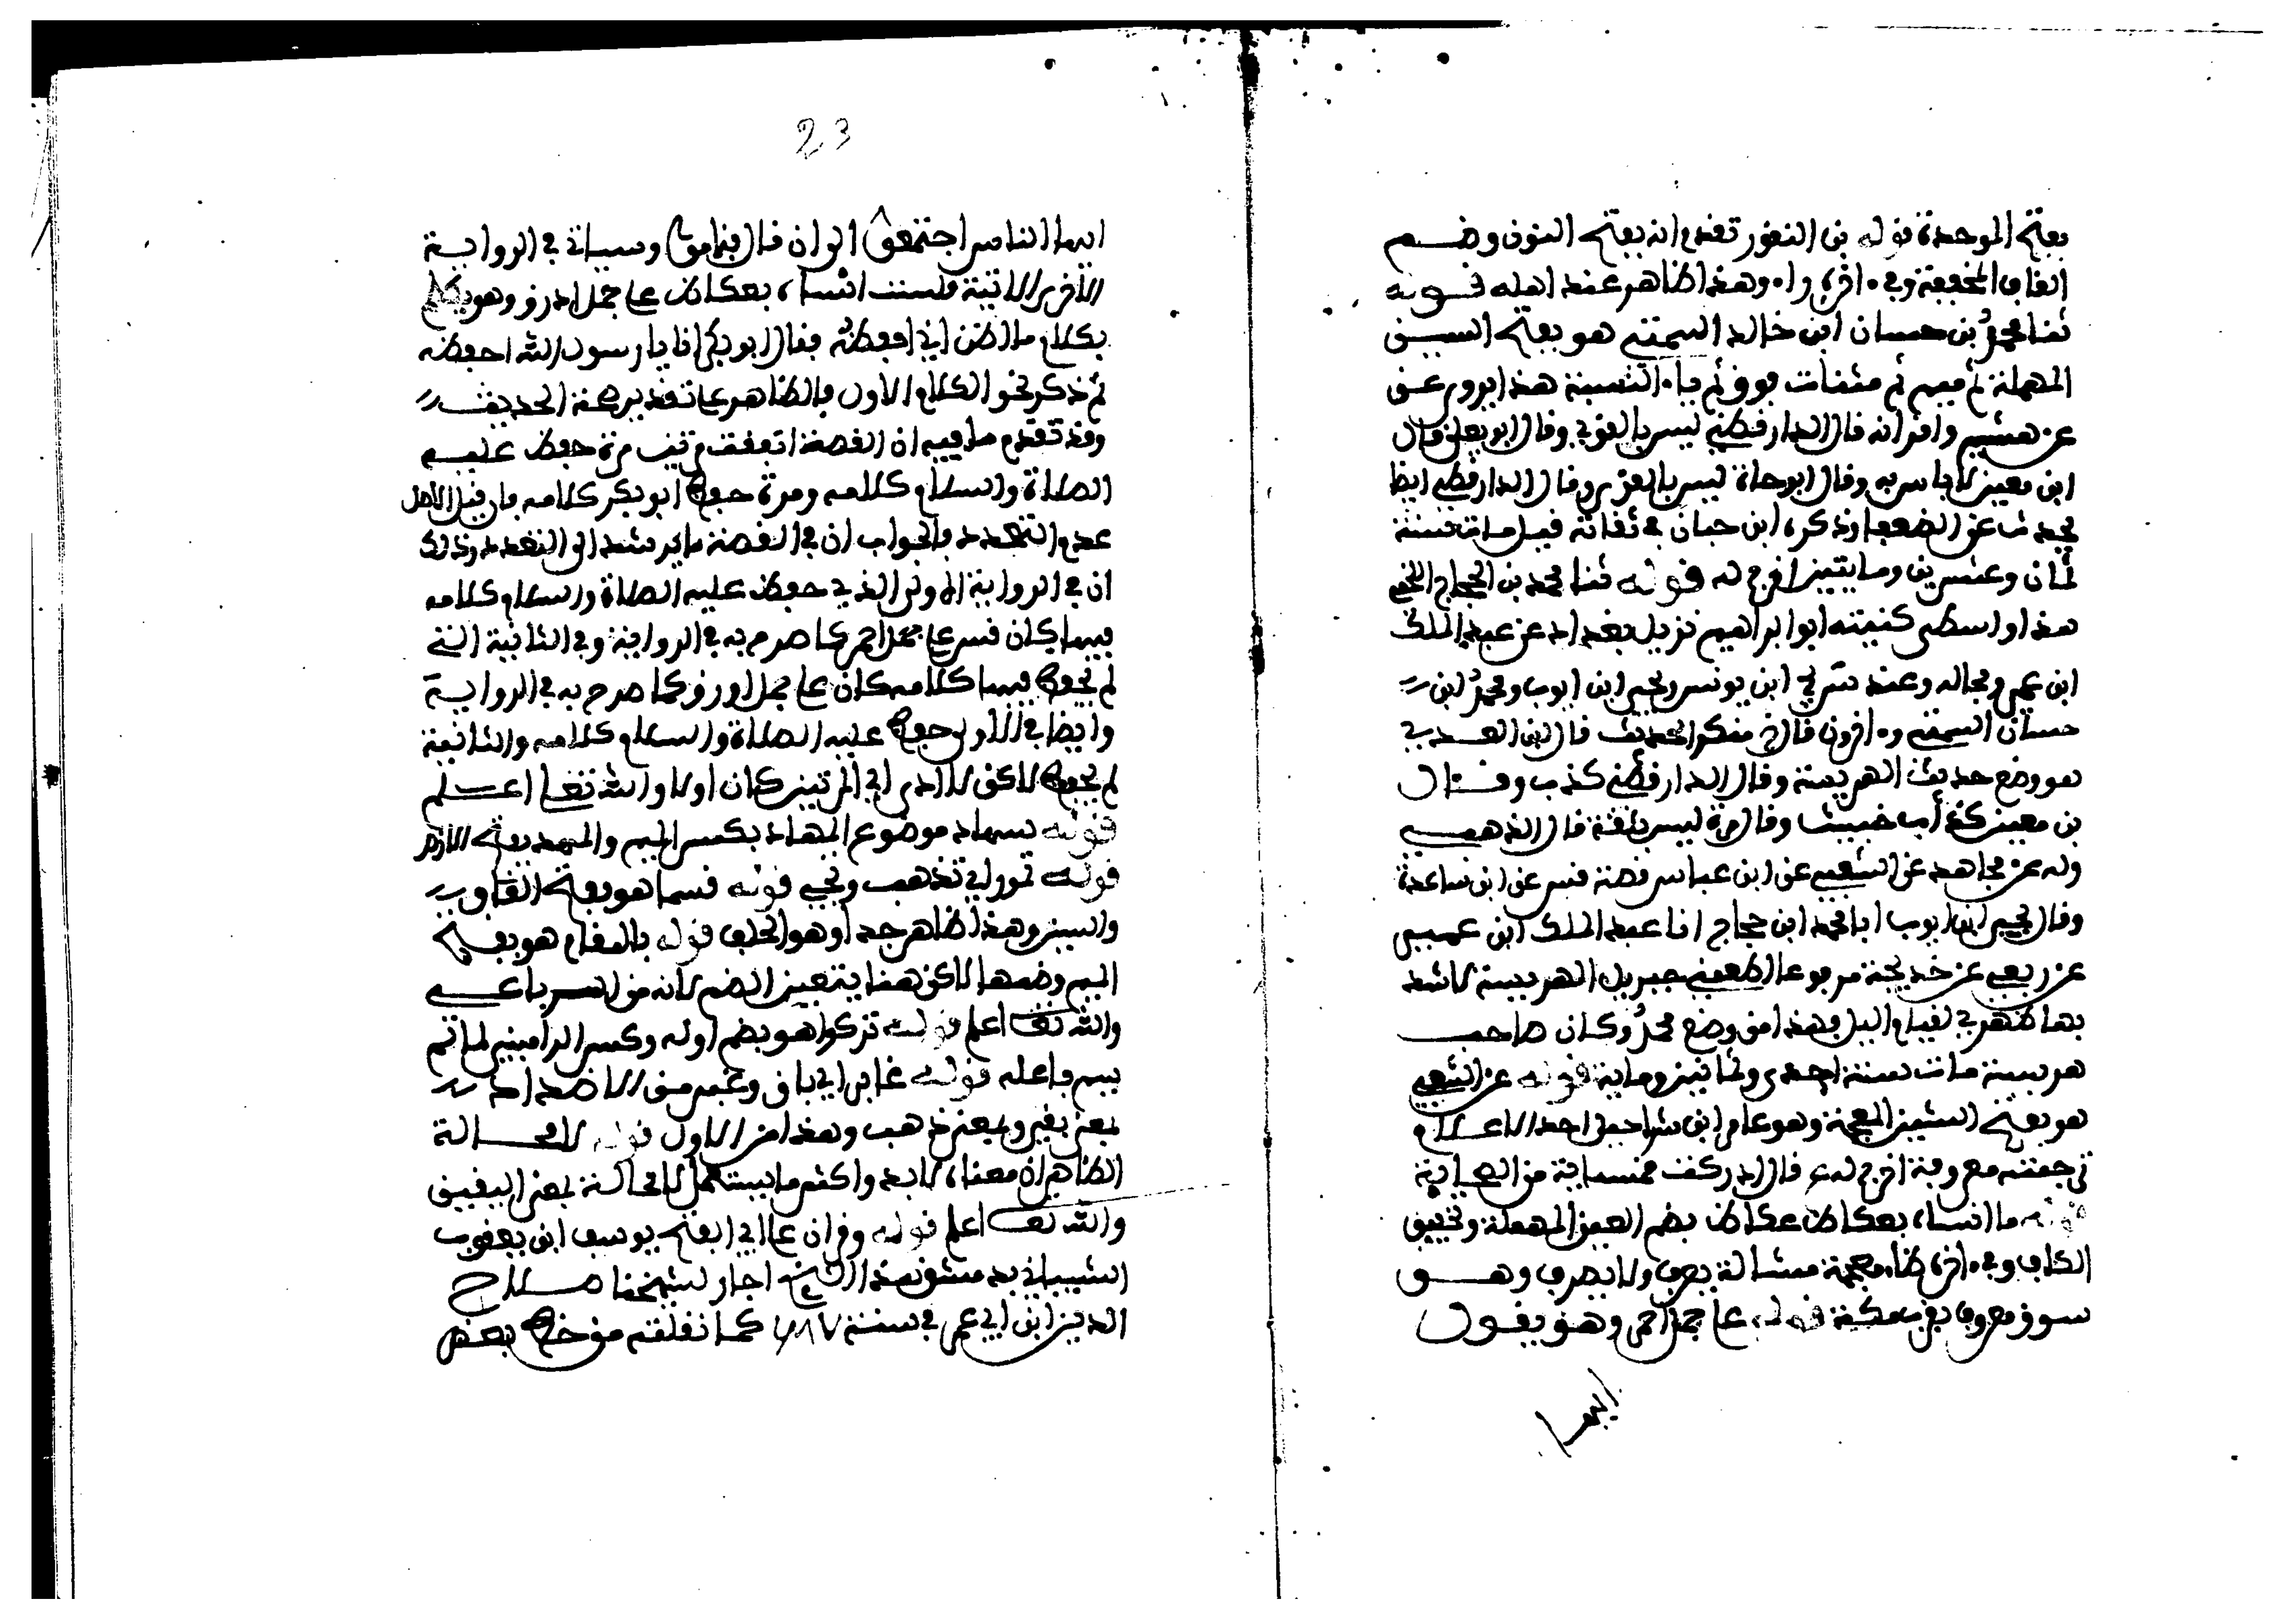 بفتح الموحدة قوله بن النقور تقدم انه بفتح النون وضم
القاف المخففة وفي ءاخره راء وهذا ظاهر عند اهله قوله
ثنا محمد بن حسان ابن خالد السمتي هو بفتح السين
المهملة ثم ميم ثم مثناة فوق ثم ياء النسبة هذا يروي عن
عن هشيم واقرانه قال الدارقطني ليس بالقوي وقال ابو يعلى قال
ابن معين لا باس به وقال ابو حاتم ليس بالقوي وقال الدارقطني ايضا
يحدث عن الضعفا وذكره ابن حبان في ثقاته قيل مات سنة
ثمان وعشرين ومايتين اخرج له قوله ثنا محمد بن الحجاج اللخمي
هذا واسطي كنيته ابو ابراهيم نزيل بغداد عن عبد الملك
ابن عمير ومجالد وعنه سريج ابن يونس ويحيى ابن ايوب ومحمد ابن
حسان السمتي وءاخرون قال خ منكر الحديث قال ابن العدي
هو وضع حديث الهريسة وقال الدارقطني كذب وقال
بن معين كذاب خبيث وقال مرة ليس بثقة قال الذهبي
وله عن مجاهد عن الشعبي عن ابن عباس قصة قس عن ابن ساعدة
وقال يحيى ابن ايوب انا محمد ابن حجاج انا عبد الملك ابن عمير
عن ربعي عن خديجة مرفوعا اطعمني جبريل الهريسة لاشد
بها ظهري لقيام اليل وهذا من وضع محمد وكان صاحب
هريسة مات سنة احدى وثمانين وماية قوله عن الشعبي
هو بفتح الشين المعجمة وهو عامر ابن شراحيل احد الاعلام
ترجمته معروفة اخرج له ع قال ادركت خمسماية من الصحابة
قوله ما انساه بعكاظ عكاظ بضم العين المهملة وتخفيف
الكاف وفي ءاخره ظاء معجمة مشالة يصرف ولا يصرف وهو
سوق معروف بقرب مكة قوله على جمل احمر وهو يقول
ايها
23
ايها الناس اجتمعوا الى ان قال وسياتي في الرواية
الاخرى الاتية ولست انساه بعكاظ على جمل اورق وهو يتكلم
بكلام ما اظن اني احفظه فقال ابو بكر انا يا رسول الله احفظه
ثم ذكر نحو الكلام الاول فالظاهر على تقدير صحة الحديث
وقد تقدم ما فيه ان القصة اتفقت مرتين مرة حفظ عليه
الصلاة والسلام كلامه ومرة حفظ ابو بكر كلامه فان قيل الاصل
عدم التعدد فالجواب ان في القصة ما يرشد الى التعدد وذلك
ان في الرواية الاولى الذي حفظ عليه الصلاة والسلام كلامه
فيها كان قس على جمل احمر كما صرح به في الرواية وفي الثانية التي
لم يحفظ فيها كلامه كان على جمل اورق كما صرح به في الرواية
وايضا في الاولى حفظ عليه الصلاة والسلام كلامه والثانية
لم يحفظ لاكن لا ادري اي المرتين كان اولا والله تعالى اعلم
قوله مهاد موضوع المهاد بكسر الميم والمهد بفتح الارض
قوله تمور اي تذهب وتجيء قوله قسما هو بفتح القاف
والسين وهذا ظاهر جدا وهو الحلف قوله بالمقام هو بفتح
الميم وضمها لاكن هنا يتعين الضم لانه من الرباعي
والله تعالى اعلم قوله تركوا هو بضم اوله وكسر الراء مبني لما لم
يسم فاعله قوله غابر اي باق وغبر من الاضداد
بمعنى بقي وبمعنى ذهب وهذا من الاول قوله لا محالة
الظاهر ان معناه لا بد واكثر ما يستعمل لا محالة بمعنى اليقين
والله تعالى اعلم قوله وقران على ابي الفتح يوسف ابن يعقوب
الشيباني بدمشق هذا الشيخ اجاز لشيخنا صلاح
الدين ابن ابي عمر في سنة ٦٨٧ كما نقلته من خط بعض